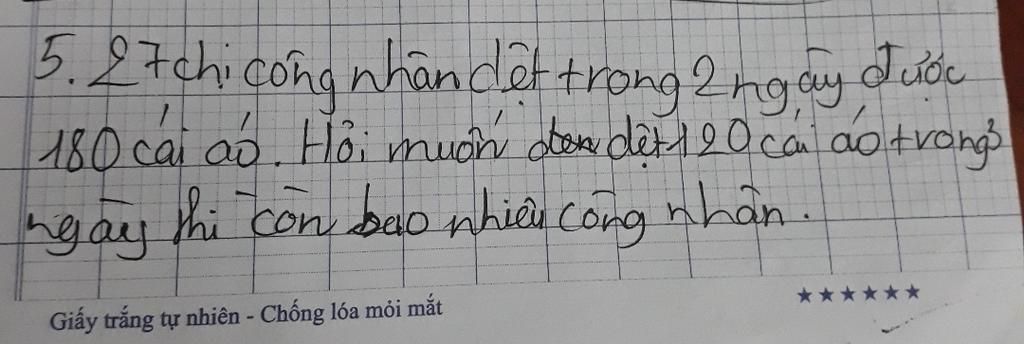 5. 27 chị công nhân dệt trong 2 ngày được
180 cái áo. Hỏi muốn dệt 120 cái áo trong 3
ngày thì cồn bao nhiêu công nhân.
Giấy trắng tự nhiên - Chống lóa mỏi mắt